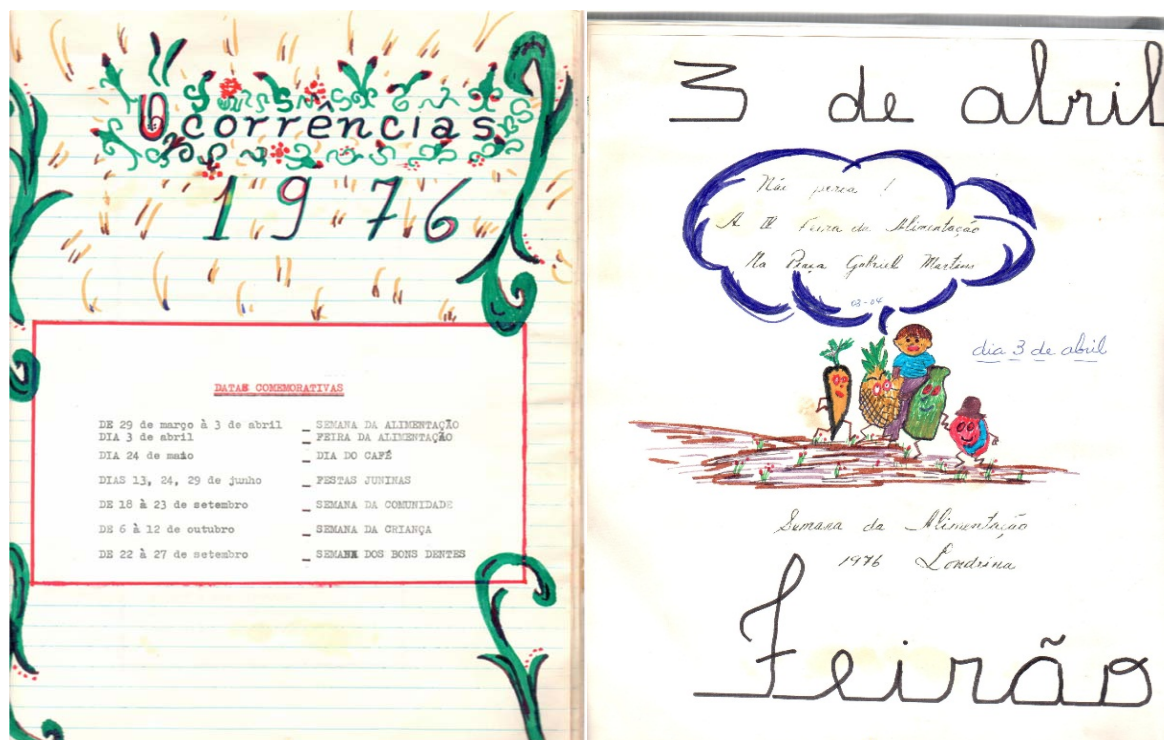 Ocorrências
1976
DATAS COMEMORATIVAS
DE 29 de março à 3 de abril _ SEMANA DA ALIMENTAÇÃO
DIA 3 de abril _ FEIRA DA ALIMENTAÇÃO
DIA 24 de maio _ DIA DO CAFÉ
DIAS 13, 24, 29 de junho _ FESTAS JUNINAS
DE 18 à 23 de setembro _ SEMANA DA COMUNIDADE
DE 6 à 12 de outubro _ SEMANA DA CRIANÇA
DE 22 à 27 de setembro _ SEMANA DOS BONS DENTES
3 de abril
Não perca !
A II Feira da Alimentação
Na Praça Gabriel Martins
03-04
dia 3 de abril
Semana da Alimentação
1976 Londrina
Feirão